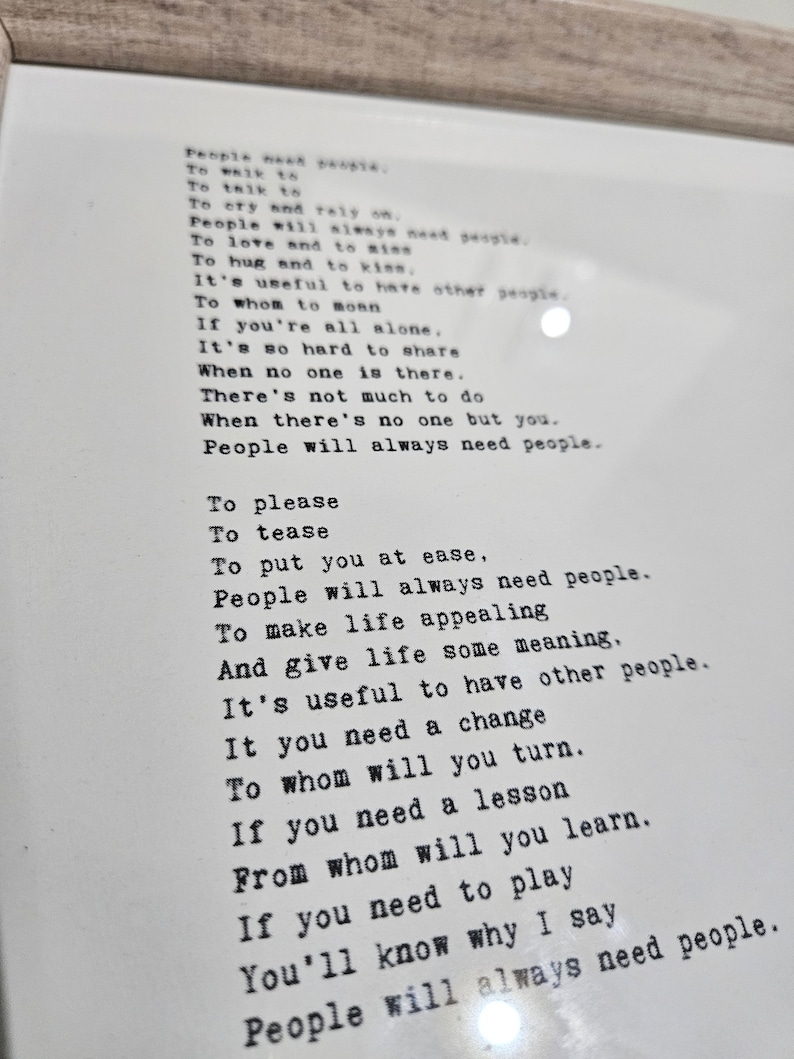 People need people.
To walk to
To talk to
To cry and rely on.
People will always need people.
To love and to miss
To hug and to kiss.
It's useful to have other people.
To whom to moan
If you're all alone.
It's so hard to share
When no one is there.
There's not much to do
When there's no one but you.
People will always need people.
To please
To tease
To put you at ease,
People will always need people.
To make life appealing
And give life some meaning.
It's useful to have other people.
It you need a change
To whom will you turn.
If you need a lesson
From whom will you learn.
If you need to play
You'll know why I say
People will always need people.